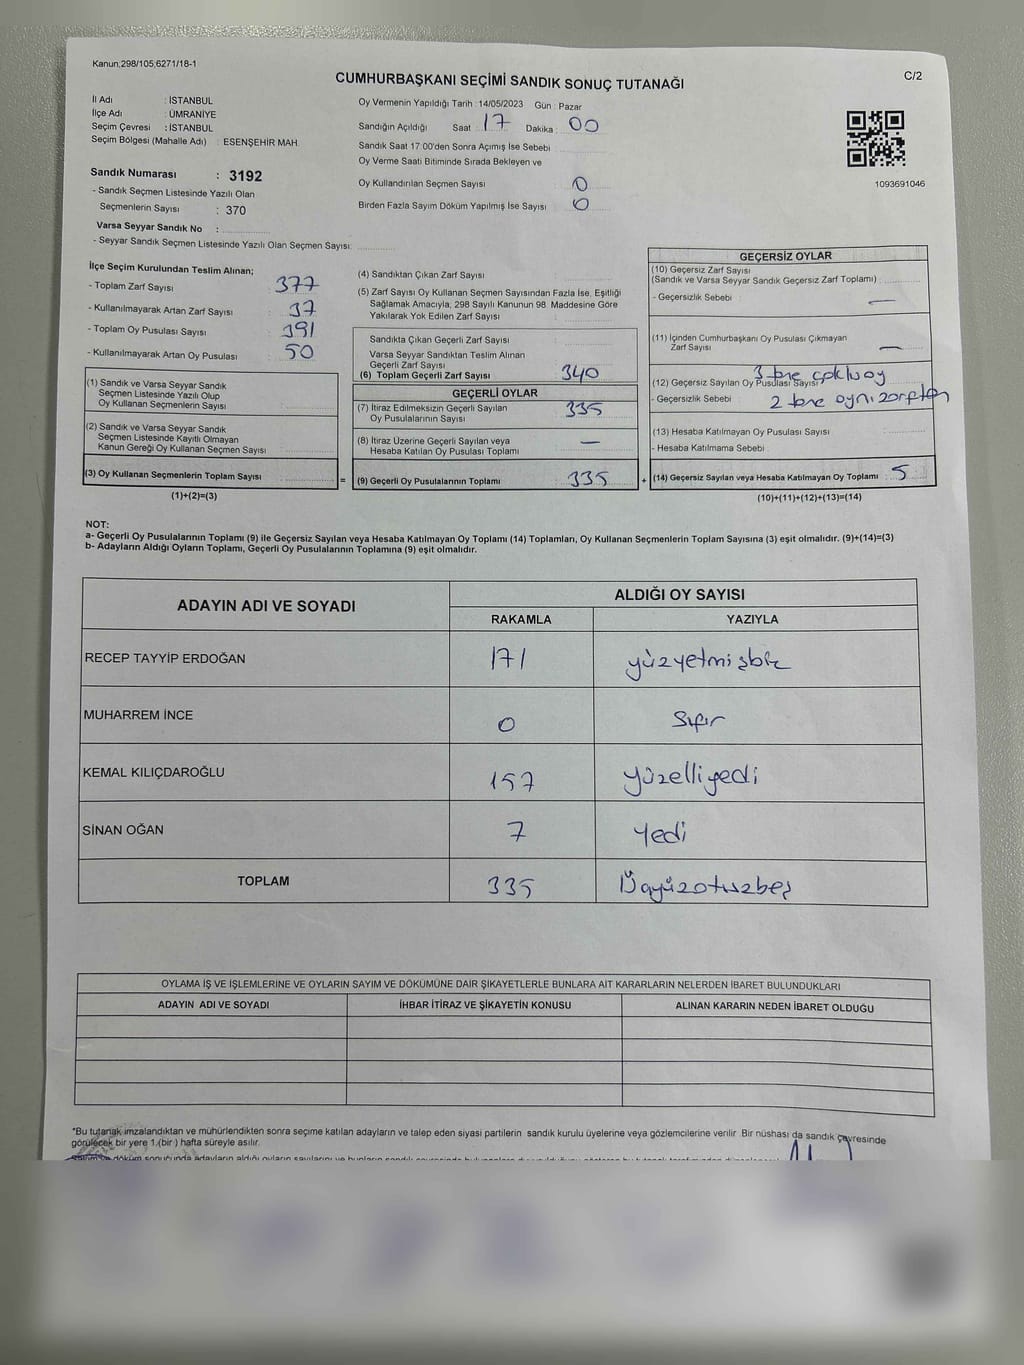 Kanun;298/105;6271/18-1
CUMHURBAŞKANI SEÇİMİ SANDIK SONUÇ TUTANAĞI
C/2
İl Adı : İSTANBUL
İlçe Adı : ÜMRANİYE
Seçim Çevresi : İSTANBUL
Seçim Bölgesi (Mahalle Adı) : ESENŞEHİR MAH.
Sandık Numarası : 3192
- Sandık Seçmen Listesinde Yazılı Olan
Seçmenlerin Sayısı : 370
Varsa Seyyar Sandık No :
- Seyyar Sandık Seçmen Listesinde Yazılı Olan Seçmen Sayısı:
Oy Vermenin Yapıldığı Tarih : 14/05/2023 Gün : Pazar
Sandığın Açıldığı Saat : 17 Dakika : 00
Sandık Saat 17:00'den Sonra Açımış İse Sebebi :
Oy Verme Saati Bitiminde Sırada Bekleyen ve
Oy Kullandırılan Seçmen Sayısı : 0
Birden Fazla Sayım Döküm Yapılmış İse Sayısı : 0
1093691046
İlçe Seçim Kurulundan Teslim Alınan;
- Toplam Zarf Sayısı : 377
- Kullanılmayarak Artan Zarf Sayısı : 37
- Toplam Oy Pusulası Sayısı : 391
- Kullanılmayarak Artan Oy Pusulası : 50
(1) Sandık ve Varsa Seyyar Sandık
Seçmen Listesinde Yazılı Olup
Oy Kullanan Seçmenlerin Sayısı :
(2) Sandık ve Varsa Seyyar Sandık
Seçmen Listesinde Kayıtlı Olmayan
Kanun Gereği Oy Kullanan Seçmen Sayısı :
(3) Oy Kullanan Seçmenlerin Toplam Sayısı :
(1)+(2)=(3)
(4) Sandıktan Çıkan Zarf Sayısı :
(5) Zarf Sayısı Oy Kullanan Seçmen Sayısından Fazla İse, Eşitliği
Sağlamak Amacıyla, 298 Sayılı Kanunun 98. Maddesine Göre
Yakılarak Yok Edilen Zarf Sayısı :
Sandıkta Çıkan Geçerli Zarf Sayısı :
Varsa Seyyar Sandıktan Teslim Alınan
Geçerli Zarf Sayısı :
(6) Toplam Geçerli Zarf Sayısı : 340
GEÇERLİ OYLAR
(7) İtiraz Edilmeksizin Geçerli Sayılan
Oy Pusulalarının Sayısı : 335
(8) İtiraz Üzerine Geçerli Sayılan veya
Hesaba Katılan Oy Pusulası Toplamı : —
= (9) Geçerli Oy Pusulalarının Toplamı : 335 +
GEÇERSİZ OYLAR
(10) Geçersiz Zarf Sayısı
(Sandık ve Varsa Seyyar Sandık Geçersiz Zarf Toplamı) :
- Geçersizlik Sebebi : —
(11) İçinden Cumhurbaşkanı Oy Pusulası Çıkmayan
Zarf Sayısı : —
(12) Geçersiz Sayılan Oy Pusulası Sayısı : 3 tane çoklu oy
- Geçersizlik Sebebi : 2 tane aynı zarftan
(13) Hesaba Katılmayan Oy Pusulası Sayısı :
- Hesaba Katılmama Sebebi :
(14) Geçersiz Sayılan veya Hesaba Katılmayan Oy Toplamı : 5
(10)+(11)+(12)+(13)=(14)
NOT:
a- Geçerli Oy Pusulalarının Toplamı (9) ile Geçersiz Sayılan veya Hesaba Katılmayan Oy Toplamı (14) Toplamları, Oy Kullanan Seçmenlerin Toplam Sayısına (3) eşit olmalıdır. (9)+(14)=(3)
b- Adayların Aldığı Oyların Toplamı, Geçerli Oy Pusulalarının Toplamına (9) eşit olmalıdır.
ADAYIN ADI VE SOYADI
ALDIĞI OY SAYISI
RAKAMLA YAZIYLA
RECEP TAYYİP ERDOĞAN 171 yüzyetmişbir
MUHARREM İNCE 0 Sıfır
KEMAL KILIÇDAROĞLU 157 yüzelliyedi
SİNAN OĞAN 7 Yedi
TOPLAM 335 Üçyüzotuzbeş
OYLAMA İŞ VE İŞLEMLERİNE VE OYLARIN SAYIM VE DÖKÜMÜNE DAİR ŞİKAYETLERLE BUNLARA AİT KARARLARIN NELERDEN İBARET BULUNDUKLARI
ADAYIN ADI VE SOYADI İHBAR İTİRAZ VE ŞİKAYETİN KONUSU ALINAN KARARIN NEDEN İBARET OLDUĞU
*Bu tutanak imzalandıktan ve mühürlendikten sonra seçime katılan adayların ve talep eden siyasi partilerin sandık kurulu üyelerine veya gözlemcilerine verilir. Bir nüshası da sandık çevresinde
görülecek bir yere 1.(bir) hafta süreyle asılır.